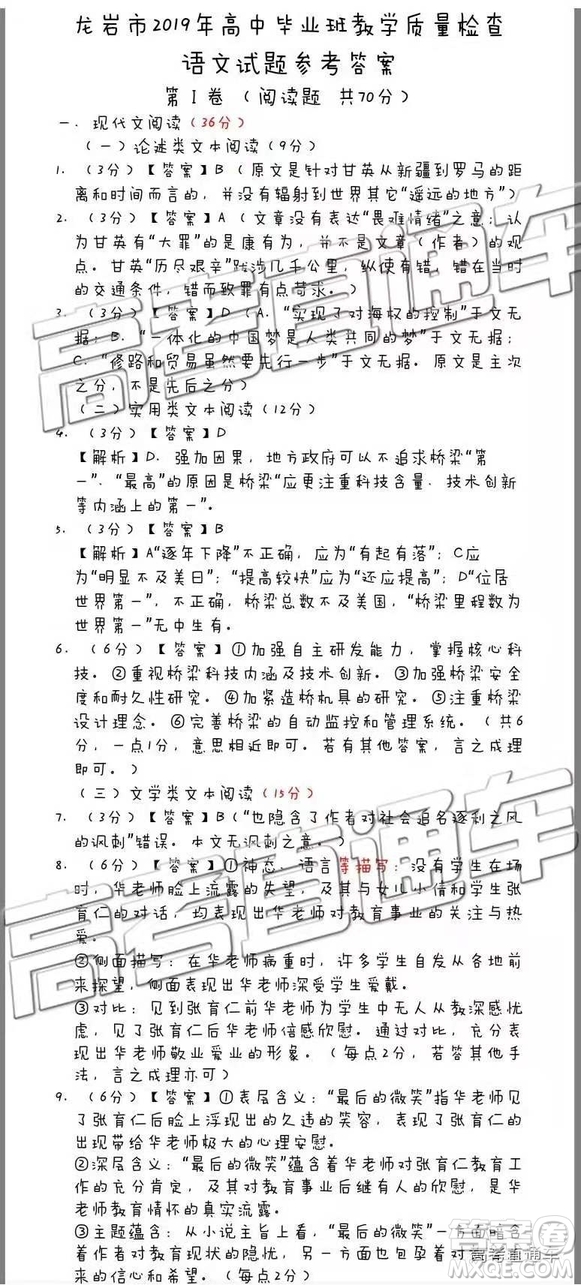 龙岩市2019年高中毕业班教学质量检查
语文试题参考答案
第Ⅰ卷（阅读题 共70分）
一．现代文阅读（36分）
（一）论述类文本阅读（9分）
1．（3分）【答案】B（原文是针对甘英从新疆到罗马的距
离和时间而言的，并没有辐射到世界其它“遥远的地方”）
2．（3分）【答案】A（文章没有表达“畏难情绪”之意；认
为甘英有“大罪”的是康有为，并不是文章（作者）的观
点。甘英“历尽艰辛”跋涉几千公里，纵使有错，错在当时
的交通条件，错而致罪有点苛求。）
3．（3分）【答案】D（A．“实现了对海权的控制”于文无
据；B．“一体化的中国梦是人类共同的梦”于文无据；
C．“修路和贸易虽然要先行一步”于文无据。原文是主次
之分，不是先后之分）
（二）实用类文本阅读（12分）
4．（3分）【答案】D
【解析】D．强加因果，地方政府可以不追求桥梁“第
一”，“最高”的原因是桥梁“应更注重科技含量、技术创新
等内涵上的第一”。
5．（3分）【答案】B
【解析】A“逐年下降”不正确，应为“有起有落”；C应
为“明显不及美日”；“提高较快”应为“还应提高”；D“位居
世界第一”，不正确，桥梁总数不及美国，“桥梁里程数为
世界第一”无中生有。
6．（6分）【答案】①加强自主研发能力，掌握核心科
技。②重视桥梁科技内涵及技术创新。③加强桥梁安全
度和耐久性研究。④加紧造桥机具的研究。⑤注重桥梁
设计理念。⑥完善桥梁的自动监控和管理系统。（共6
分，一点1分，意思相近即可。若有其他答案，言之成理
即可。）
（三）文学类文本阅读（15分）
7．（3分）【答案】B（“也隐含了作者对社会追名逐利之风
的讽刺”错误。本文无讽刺之意。）
8．（6分）【答案】①神态、语言等描写：没有学生在场
时，华老师脸上流露的失望，及其与女儿小倩和学生张
育仁的对话，均表现出华老师对教育事业的关注与热
爱。
②侧面描写：在华老师病重时，许多学生自发从各地前
来探望，侧面表现出华老师深受学生爱戴。
③对比：见到张育仁前华老师为学生中无人从教深感忧
虑，见了张育仁后华老师倍感欣慰。通过对比，充分表
现出华老师敬业爱业的形象。（每点2分，若答其他手
法，言之成理亦可）
9．（6分）【答案】①表层含义：“最后的微笑”指华老师见
了张育仁后脸上浮现出的久违的笑容，表现出张育仁的
出现带给华老师极大的心理安慰。
②深层含义：“最后的微笑”蕴含着华老师对张育仁教育工
作的充分肯定，及其对教育事业后继有人的欣慰，是华
老师教育情怀的真实流露。
③主题蕴含：从小说主旨上看，“最后的微笑”一方面暗含
着作者对教育现状的隐忧，另一方面也包孕着对
来的信心和希望。（每点2分）
高考直通车
高考直通车
高考直通车